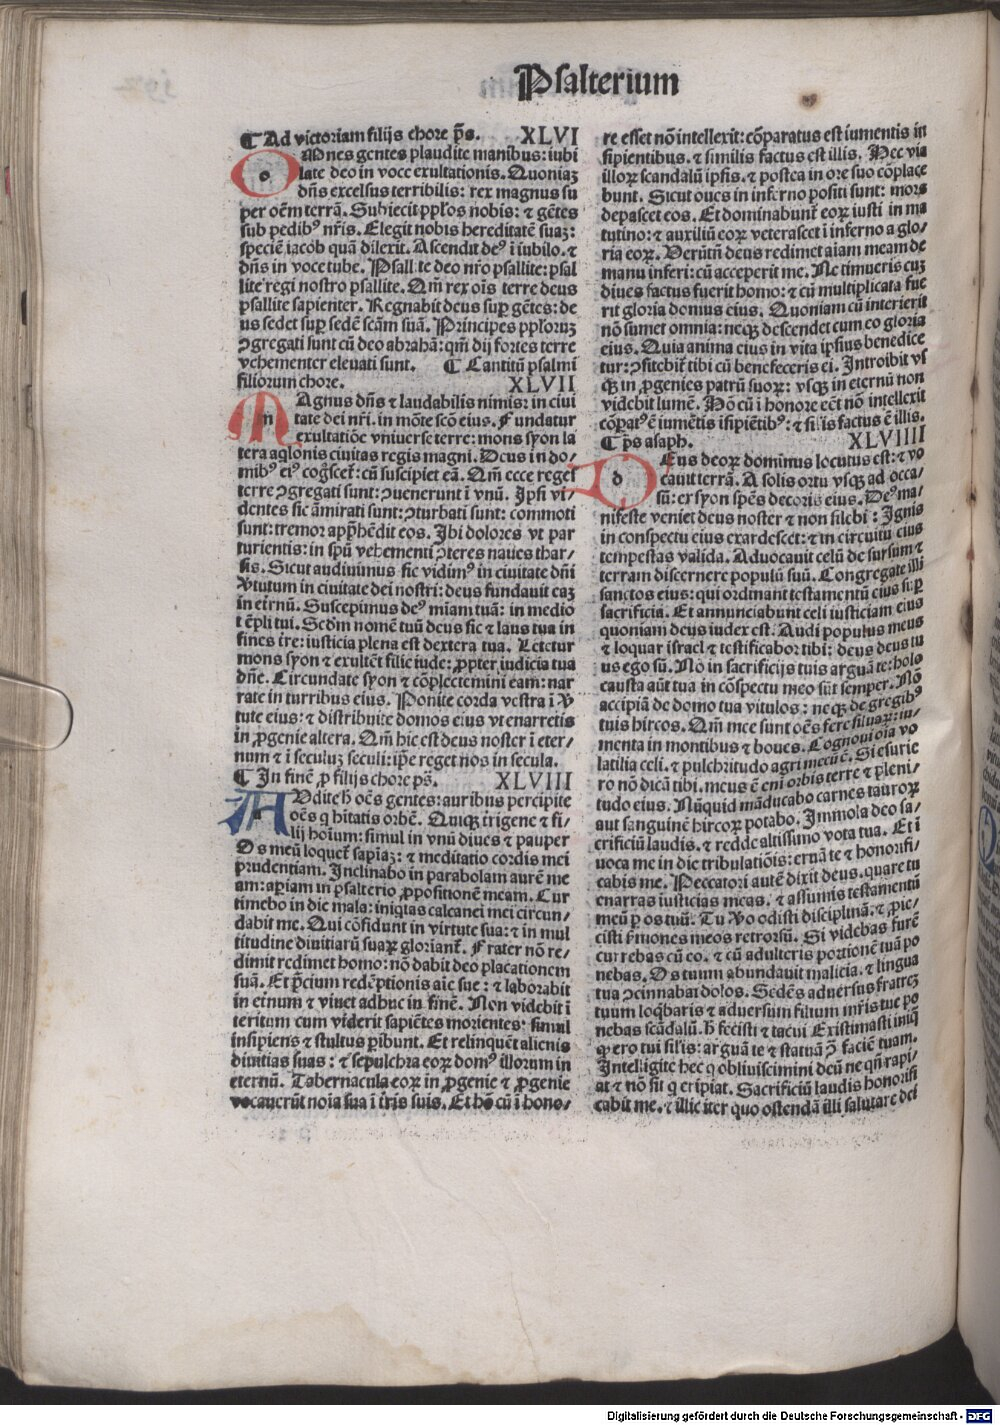 Psalterium
¶ Ad victoriam filijs chore p̄s. XLVI
OMnes gentes plaudite manibus: iubi
late deo in voce exultationis. Quoniaꝫ
dn̄s excelsus terribilis: rex magnus su
per oēm terrā. Subiecit ppl'os nobis: ⁊ gētes
sub pedibꝰ nr̄is. Elegit nobis hereditatē suaꝫ:
speciē iacob quā dilexit. Ascendit deꝰ ī iubilo. ⁊
dn̄s in voce tube. Psallite deo nr̄o psallite: psal
lite regi nostro psallite. Qm̄ rex oīs terre deus
psallite sapienter. Regnabit deus suꝑ gētes: de
us sedet suꝑ sedē scām suā. Principes ppl'oruꝫ
ꝯgregati sunt cū deo abrahā: qm̄ dij fortes terre
vehementer eleuati sunt. ¶ Canticū psalmi
filiorum chore. XLVII
MAgnus dn̄s ⁊ laudabilis nimis: in ciui
tate dei nr̄i. in mōte scō eius. Fundatur
exultatiōe vniuerse terre: mons syon la
tera aqlonis ciuitas regis magni. Deus in do/
mibꝰ eiꝰ cog̊scet̄: cū suscipiet eā. Qm̄ ecce reges
terre ꝯgregati sunt: ꝯuenerunt ī vnū. Ipsi vi/
dentes sic āmirati sunt: ꝯturbati sunt: commoti
sunt: tremor appr̄hēdit eos. Ibi dolores vt par
turientis: in spū vehementi ꝯteres naues thar/
sis. Sicut audiuimus sic vidimꝰ in ciuitate dn̄i
v̓tutum in ciuitate dei nostri: deus fundauit eaꝫ
in eternū. Suscepimus deꝰ miam tuā: in medio
tēpli tui. Scdm̄ nomē tuū deus sic ⁊ laus tua in
fines tre: iusticia plena est dextera tua. Letetur
mons syon ⁊ exultēt filie iude: ꝓpter iudicia tua
dn̄e. Circundate syon ⁊ cōplectemini eam: nar
rate in turribus eius. Ponite corda vestra ī v̓
tute eius: ⁊ distribuite domos eius vt enarretis
in ꝓgenie altera. Qm̄ hic est deus noster ī eter/
num ⁊ ī seculuꝫ seculi: ip̄e reget nos in secula.
¶ In finē ꝓ filijs chore ps̄. XLVIII
AVdite h̄ oēs gentes: auribus percipite
oēs q hītatis orbē. Quiqꝫ trigene ⁊ fi/
lij hoīum: simul in vnū diues ⁊ pauper
Os meū loquet̄ sapiaꝫ: ⁊ meditatio cordis mei
prudentiam. Inclinabo in parabolam aurē me
am: aꝑiam in psalterio ꝓpositionē meam. Cur
timebo in die mala: iniqtas calcanei mei circun/
dabit me. Qui cōfidunt in virtute sua: ⁊ in mul
titudine diuitiarū suaꝝ gloriant̄. Frater nō re/
dimit redimet homo: nō dabit deo placationem
suā. Et p̄cium redēptionis aīe sue: ⁊ laborabit
in eternum ⁊ viuet adhuc in finē. Non videbit ī
teritum cum viderit sapiētes morientes: simul
insipiens ⁊ stultus ꝑibunt. Et relinquēt alienis
diuitias suas: ⁊ sepulchra eoꝝ domꝰ illorum in
eternū. Tabernacula eoꝝ in ꝓgenie ⁊ ꝓgenie
vocauerūt noīa sua ī tr̄is suis. Et hō cū ī hono/
re esset nō intellexit: cōparatus est iumentis in
sipientibus. ⁊ similis factus est illis. Hec via
illoꝝ scandalū ipsis. ⁊ postea in ore suo cōplace
bunt. Sicut oues in inferno positi sunt: mors
depascet eos. Et dominabunt̄ eoꝝ iusti in ma
tutino: ⁊ auxiliū eoꝝ veterascet ī inferno a glo/
ria eoꝝ. Verūtn̄ deus redimet aīam meam de
manu inferi: cū acceperit me. Ne timueris cuꝫ
diues factus fuerit homo: ⁊ cū multiplicata fue
rit gloria domus eius. Quoniam cū interierit
nō sumet omnia: neqꝫ descendet cum eo gloria
eius. Quia anima eius in vita ipsius benedice
tur: ꝯfitebit̄ tibi cū benefeceris ei. Introibit vs
qꝫ in ꝓgenies patrū suoꝝ: vsqꝫ in eternū non
videbit lumē. Hō cū ī honore eēt nō intellexit
cōꝑatꝰ ē iumētis īsipiētibꝰ: ⁊ sīlis factus ē illis.
¶ ps̄ asaph. XLVIIII
DEus deoꝝ dominus locutus est: ⁊ vo
cauit terrā. A solis ortu vsqꝫ ad occa/
sū: ex syon spēs decoris eius. Deꝰ ma/
nifeste veniet deus noster ⁊ non silebi: Ignis
in conspectu eius exardescet: ⁊ in circuitu eius
tempestas valida. Aduocauit celū de sursum ⁊
terram discernere populū suū. Congregate illi
sanctos eius: qui ordinant testamentū eius suꝑ
sacrificia. Et annunciabunt celi iusticiam eius
quoniam deus iudex est. Audi populus meus
⁊ loquar israel ⁊ testificabor tibi: deus deus tu
us ego sū. Nō in sacrificijs tuis arguā te: holo
causta aūt tua in cōspectu meo sūt semper. Nō
accipiā de domo tua vitulos: neqꝫ de gregibꝰ
tuis hircos. Qm̄ mee sunt oēs fere siluaꝝ: iu/
menta in montibus ⁊ boues. Cognoui oīa vo
latilia celi. ⁊ pulchritudo agri mecū ē. Si esurie
ro nō dicā tibi. meus ē eni orbis terre ⁊ pleni/
tudo eius. Nūquid māducabo carnes tauroꝝ
aut sanguinē hircoꝝ potabo. Immola deo sa/
crificiū laudis. ⁊ redde altissimo vota tua. Et ī
uoca me in die tribulatiōis: eruā te ⁊ honorifi/
cabis me. Peccatori autē dixit deus. quare tu
enarras iusticias meas. ⁊ assumis testamentū
meū ꝑ os tuū. Tu v̓o odisti disciplinā. ⁊ ꝓie/
cisti s̄mones meos retrorsū. Si videbas furē
currebas cū eo. ⁊ cū adulteris portionē tuā po
nebas. Os tuum abundauit malicia. ⁊ lingua
tua ꝯcinnabat dolos. Sedēs aduersus fratreꝫ
tuum loqbaris ⁊ aduersum filium mr̄is tue po
nebas scādalū. h̄ fecisti ⁊ tacui Existimasti iniq̄
ꝙ ero tui silis: arguā te ⁊ statuā ꝯ̄ faciē tuam.
Intelligite hec q obliuiscimini deū ne qn̄ rapi/
at ⁊ nō sit q eripiat. Sacrificiū laudis honorifi
cabit me. ⁊ illic iter quo ostendā illi salutare dei
Digitalisierung gefördert durch die Deutsche Forschungsgemeinschaft - DFG